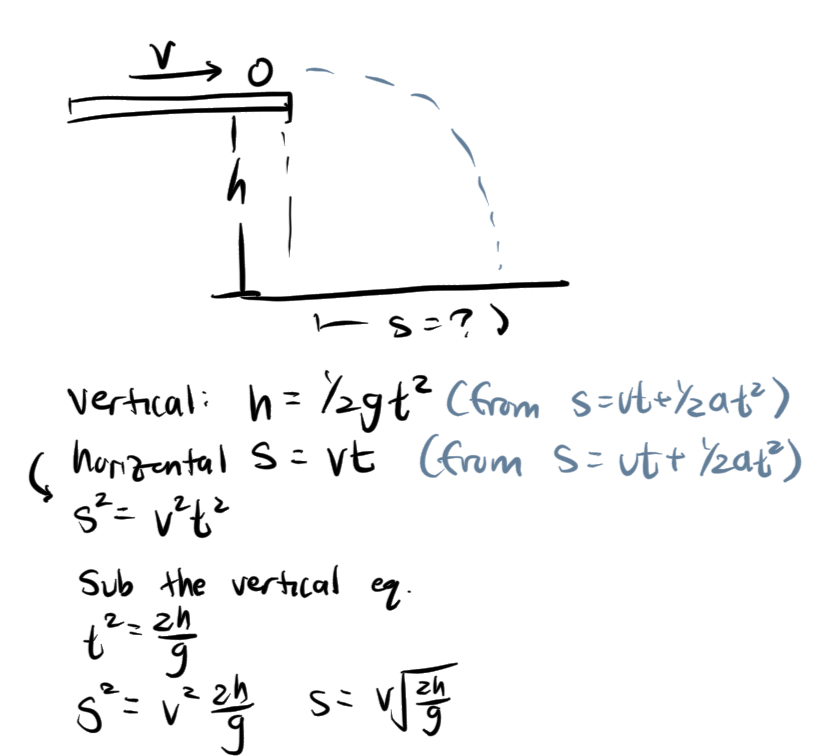 v
O
h
s = ?
vertical: h = ½gt² (from s=ut+½at²)
horizontal s = vt (from s = ut + ½at²)
s² = v²t²
Sub the vertical eq.
t² = 2h/g
s² = v² 2h/g s = v√(2h/g)